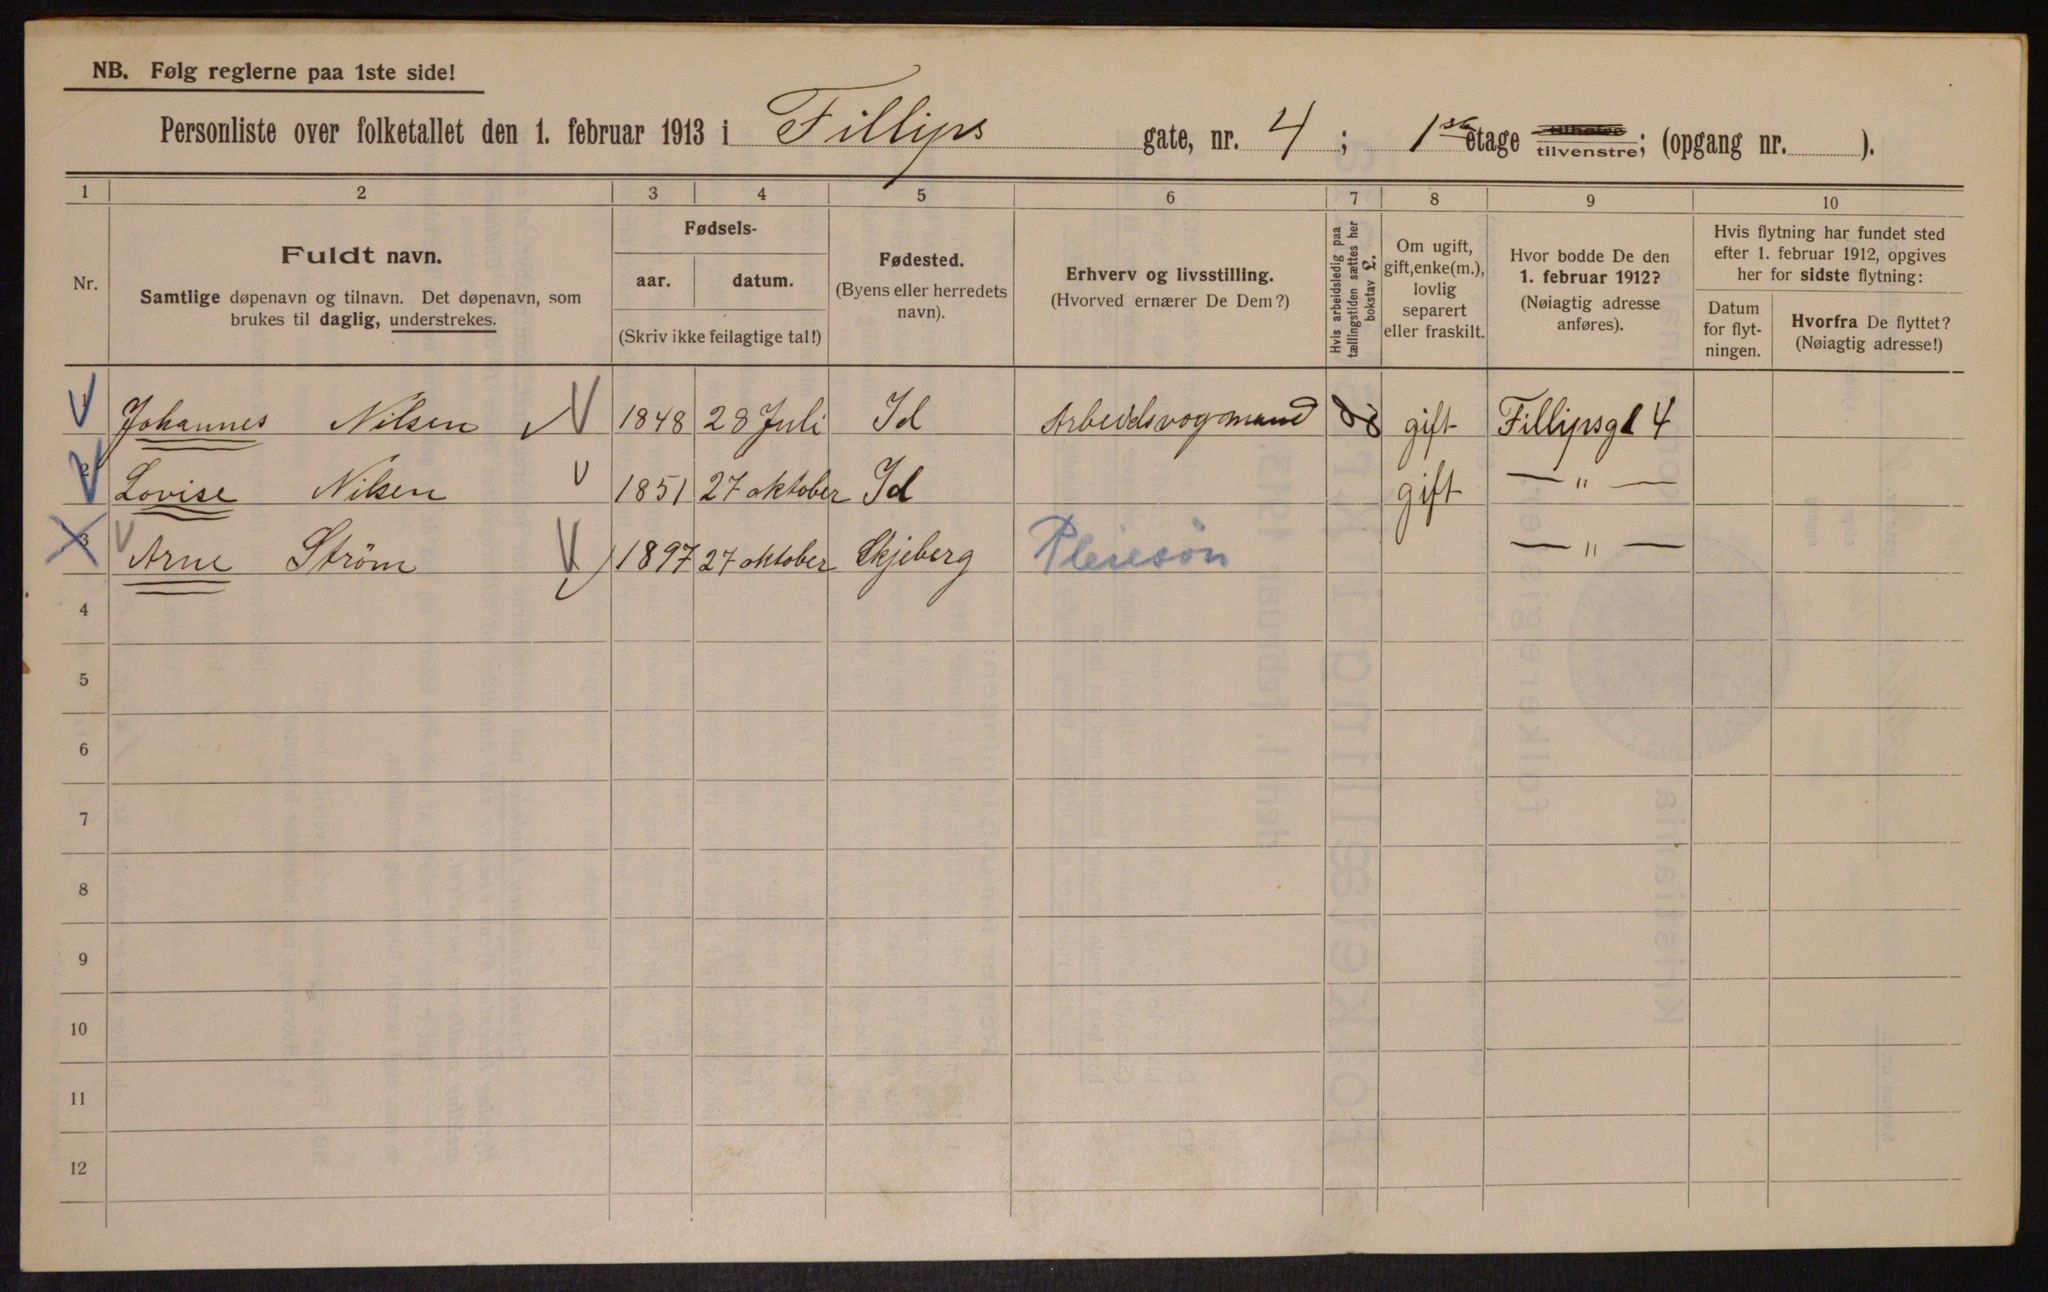 NB. Følg reglerne paa 1ste side!
Personliste over folketallet den 1. februar 1913 i Fillips gate, nr. 4 ; 1ste etage tilhøire tilvenstre; (opgang nr. ).
1 2 3 4 5 6 7 8 9 10
Nr.
Fuldt navn.
Samtlige døpenavn og tilnavn. Det døpenavn, som
brukes til daglig, understrekes.
Fødsels-
aar. datum.
(Skriv ikke feilagtige tal!)
Fødested.
(Byens eller herredets
navn).
Erhverv og livsstilling.
(Hvorved ernærer De Dem?)
Hvis arbeidsledig paa
tællingstiden sættes her
bokstav L.
Om ugift,
gift, enke(m.),
lovlig
separert
eller fraskilt.
Hvor bodde De den
1. februar 1912?
(Nøiagtig adresse
anføres).
Hvis flytning har fundet sted
efter 1. februar 1912, opgives
her for sidste flytning:
Datum
for flyt-
ningen.
Hvorfra De flyttet?
(Nøiagtig adresse!)
1 Johannes Nilsen 1848 28 Juli Id Arbeidsvogmand L gift Fillipsgt 4
2 Lovise Nilsen 1851 27 oktober Id gift — " —
3 Arne Strøm 1897 27 oktober Skjeberg Pleiesøn — " —
4
5
6
7
8
9
10
11
12